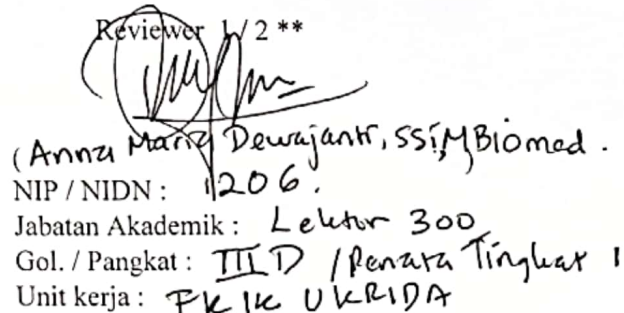 Reviewer 1 / 2 **
(Anna Maria Dewajanti, SSi, MBiomed.)
NIP / NIDN : 1206.
Jabatan Akademik : Lektor 300
Gol. / Pangkat : III D / Penata Tingkat 1
Unit kerja : FKIK UKRIDA